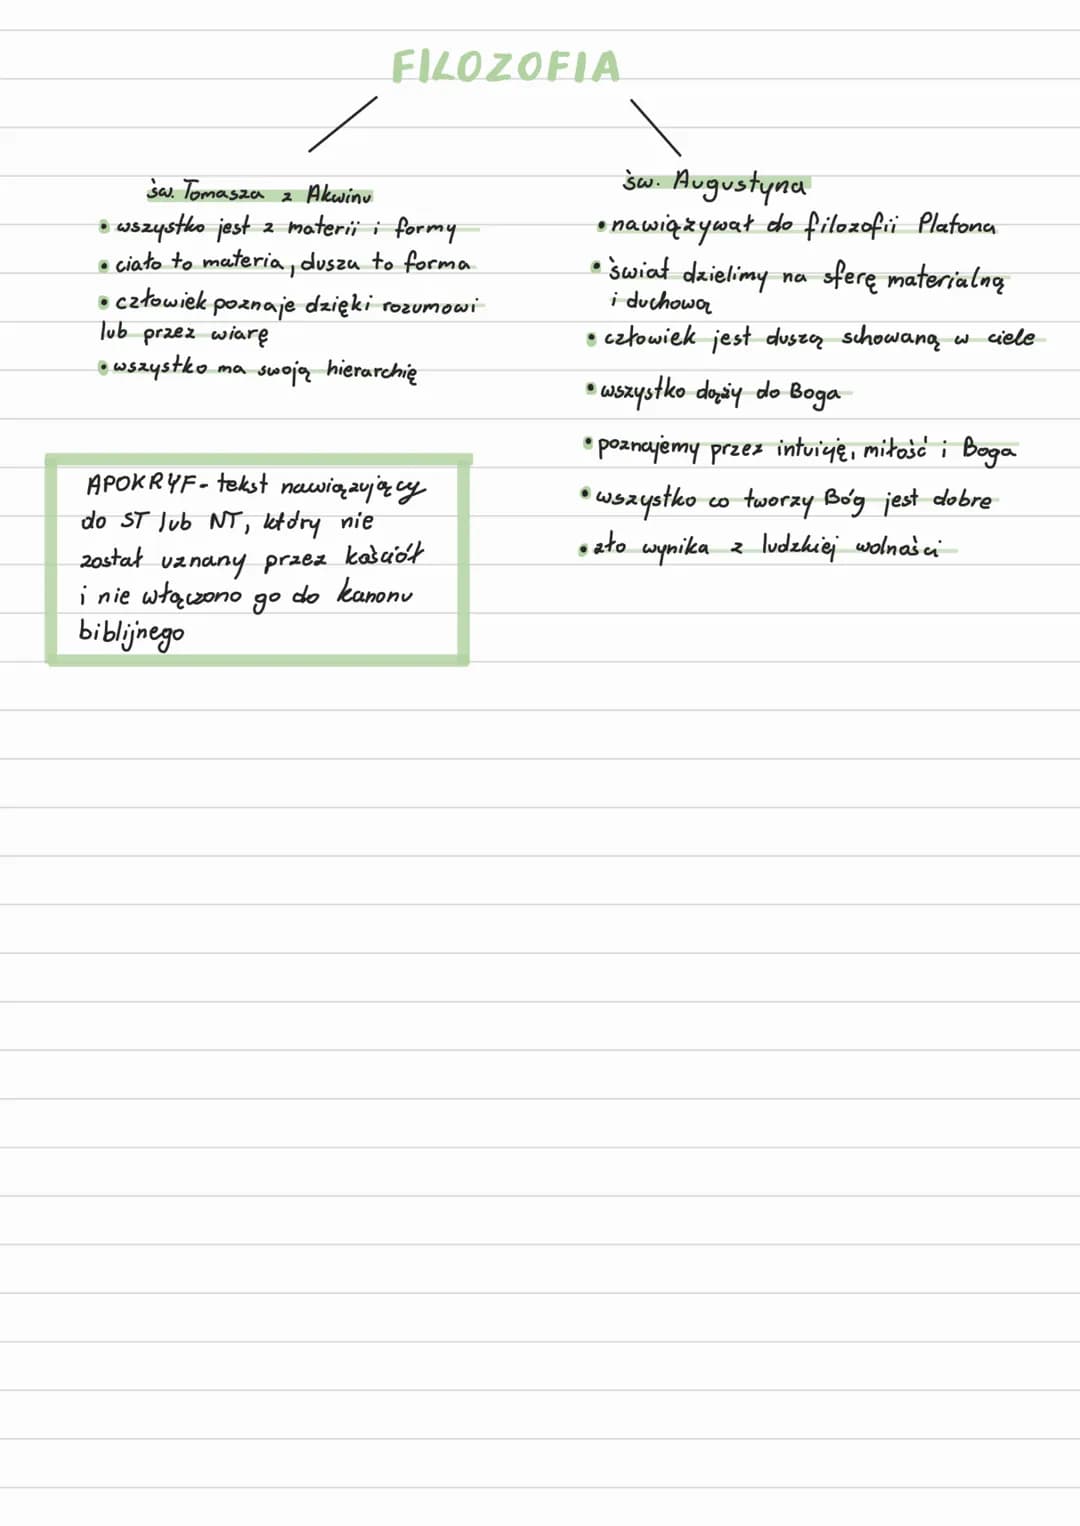 FILOZOFIA
św. Tomasza z Akwinu
• wszystko jest z materii i formy
• ciało to materia, dusza to forma
• człowiek poznaje dzięki rozumowi
lub przez wiarę
• wszystko ma swoją hierarchię
APOKRYF - tekst nawiązujący
do ST lub NT, który nie
został uznany przez kościół
i nie włączono go do kanonu
biblijnego
św. Augustyna
• nawiązywał do filozofii Platona
• świat dzielimy na sferę materialną
i duchową
• człowiek jest duszą schowaną w ciele
• wszystko dąży do Boga
• poznajemy przez intuicję, miłość i Boga
• wszystko co tworzy Bóg jest dobre
• zło wynika z ludzkiej wolności